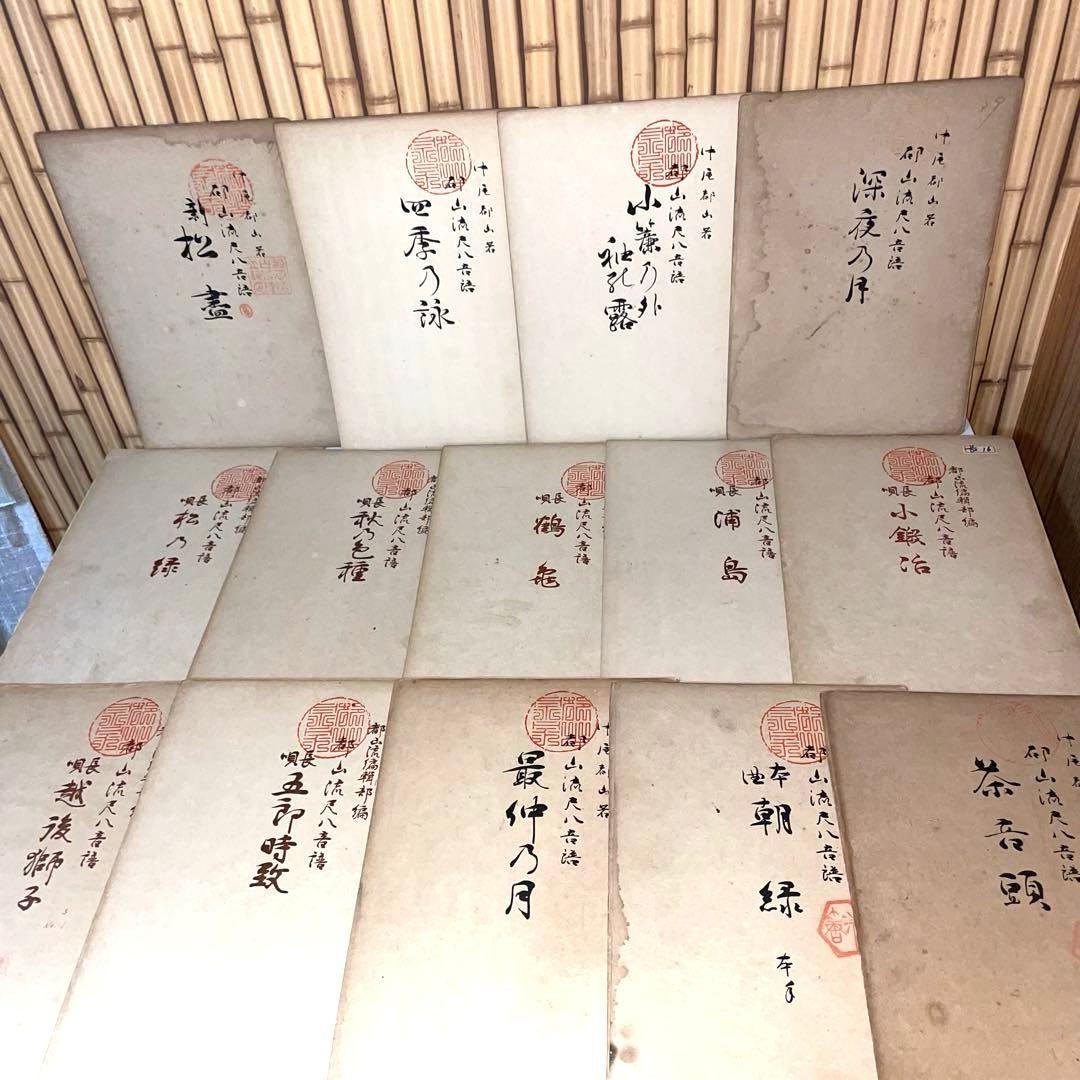 中尾都山著
都山流尺八音譜
新松盡
中尾都山著
都山流尺八音譜
四季乃詠
中尾都山著
都山流尺八音譜
小簾乃外
袖の露
中尾都山著
都山流尺八音譜
深夜乃月
都山流編輯部編
都山流尺八音譜
長唄
松乃緑
都山流編輯部編
都山流尺八音譜
長唄
秋乃色種
都山流尺八音譜
長唄
鶴亀
都山流尺八音譜
長唄
浦島
都山流編輯部編
都山流尺八音譜
長唄
小鍛冶
都山流尺八音譜
長唄
越後獅子
都山流編輯部編
都山流尺八音譜
長唄
五郎時致
中尾都山著
都山流尺八音譜
最仲乃月
都山流尺八音譜
本曲
朝緑
本手
中尾都
都山流尺八音譜
茶音頭